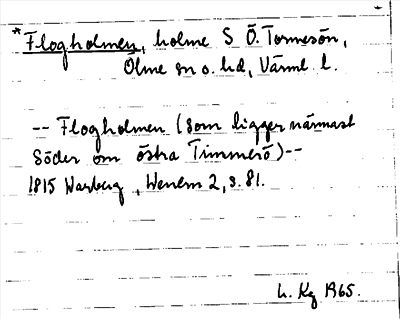 *Flogholmen, holme S Ö. Tormesön,
Ölme sn o. hd, Värml. l.
-- Flogholmen (som ligger närmast
Söder om östra Timmerö) --
1815 Warberg, Wenern 2, s. 81.
L. Kg 1965.